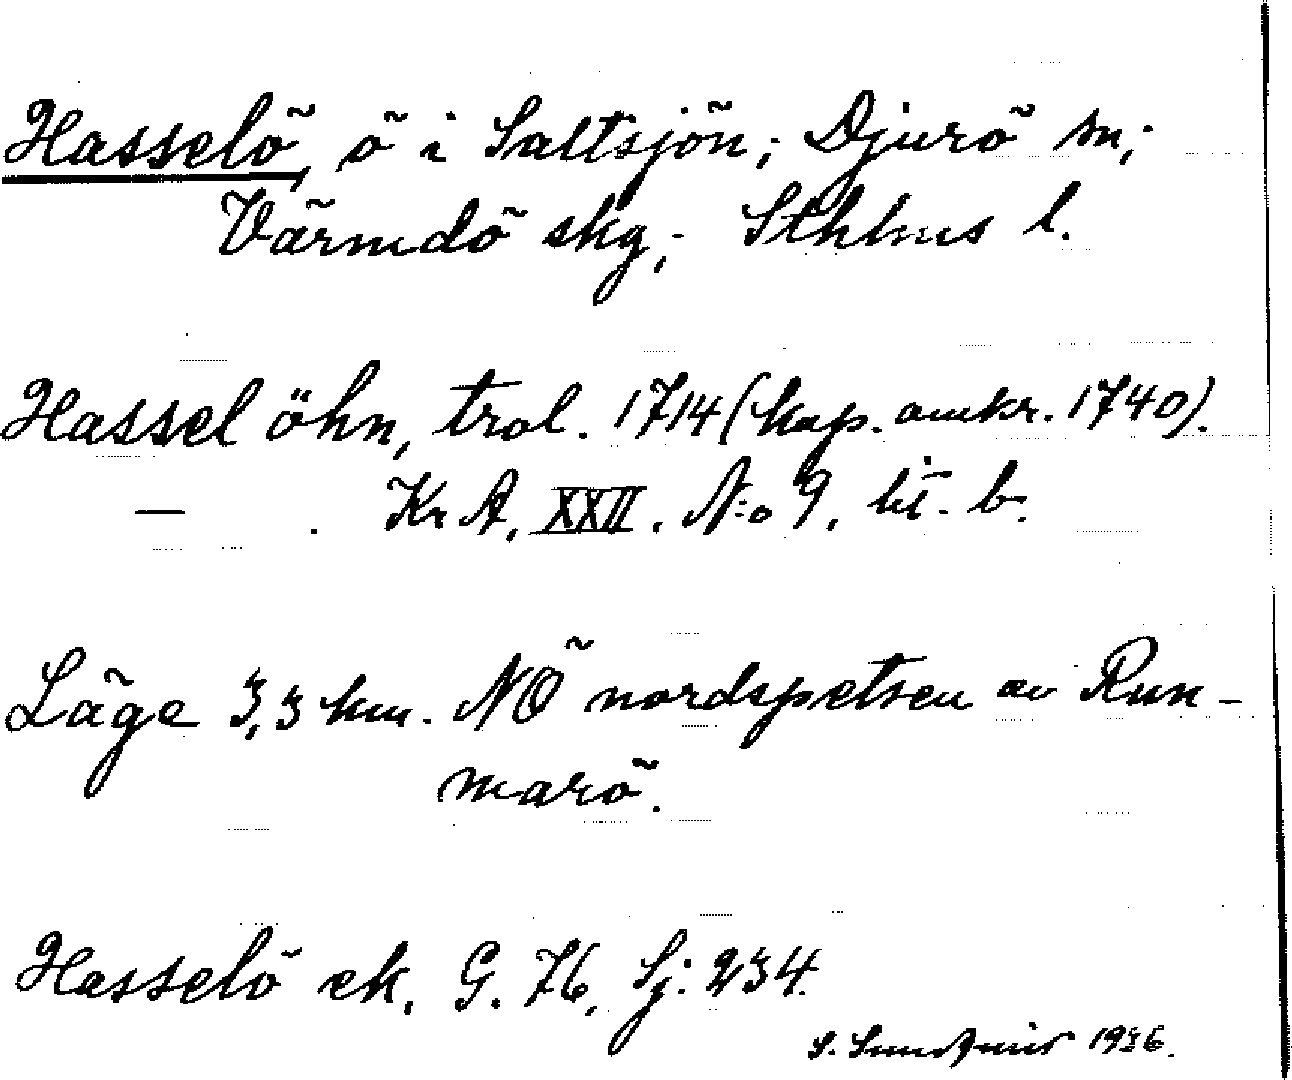 Hasselö, ö i Saltsjön; Djurö sn;
Värmdö skg; Sthlms l.
Hassel öhn, trol. 1714 (kop. omkr. 1740).
— . Kr A, XXII. N:o 9. lit. b.
Läge 3,3 km. NÖ nordspetsen av Run-
marö.
Hasselö ek. G. 76, Sj: 234.
S. 1936.